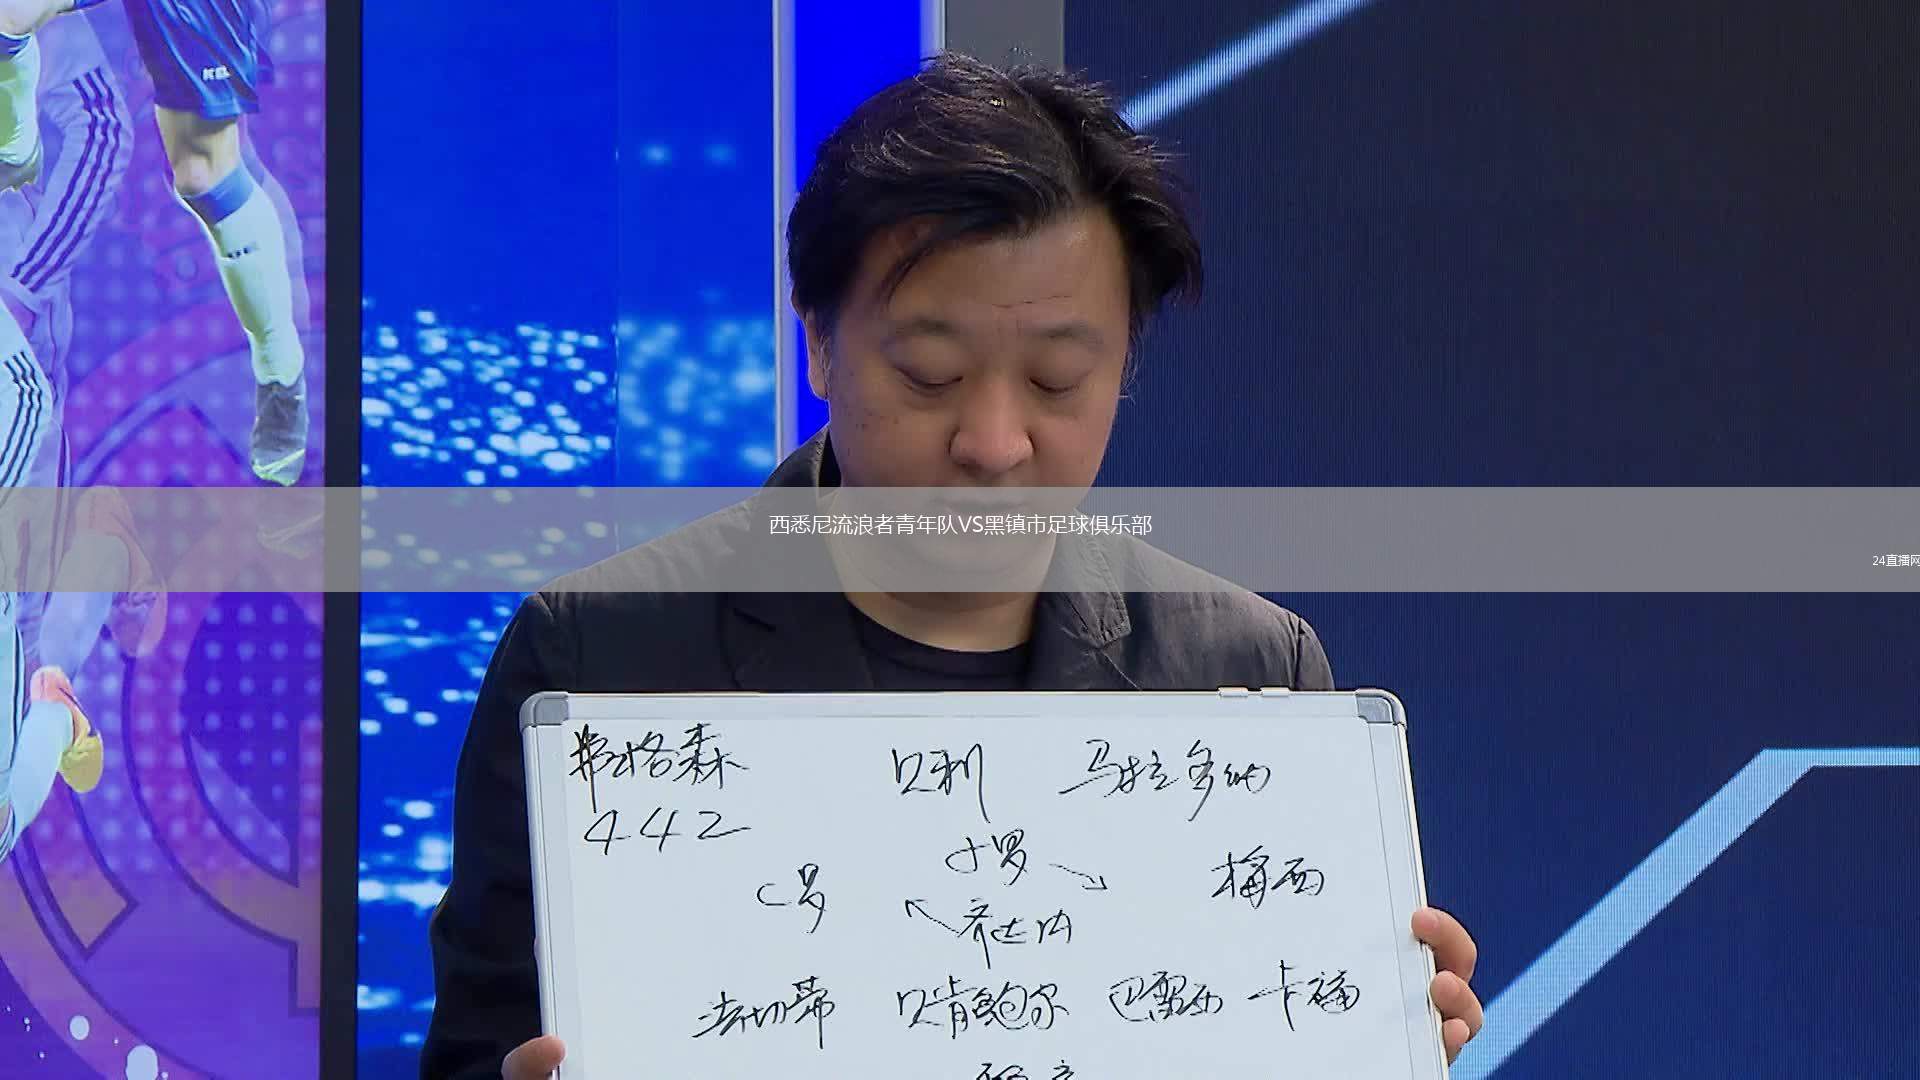 西悉尼流浪者青年队VS黑镇市足球俱乐部
24直播网
弗格森 贝利 马拉多纳
442
小罗
C罗 梅西
齐达内
法切蒂 贝肯鲍尔 巴雷西 卡福